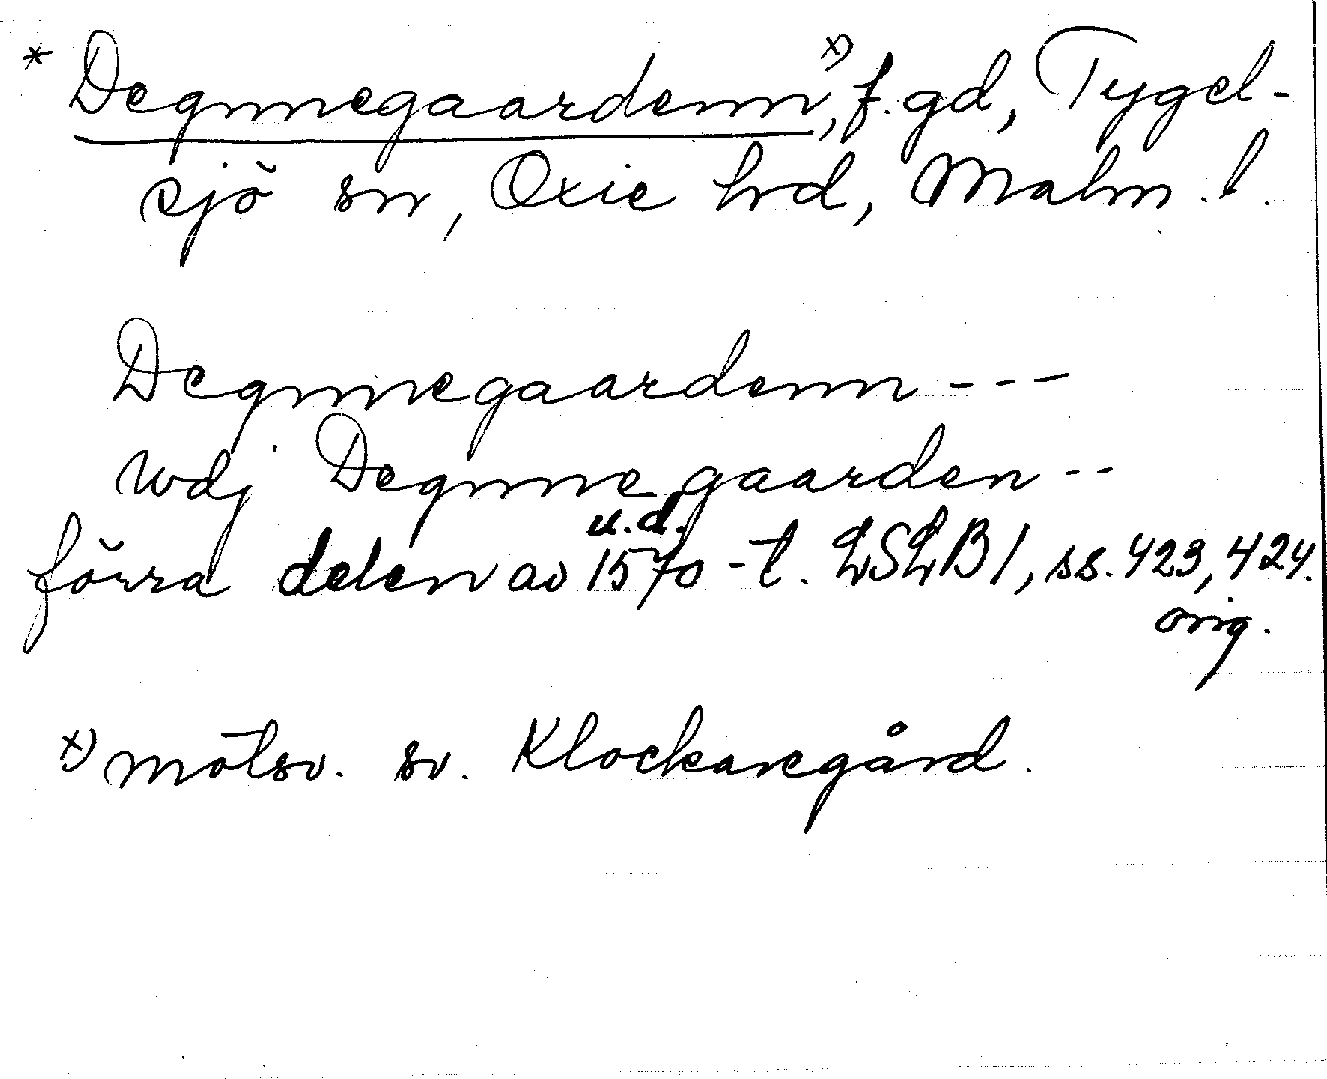 * Degnnegaardenn,ˣ⁾ f. gd, Tygel-
sjö sn, Oxie hrd, Malm. l.
Degnnegaardenn - - -
wdj Degnne gaarden - -
u.d.
förra delen av 1570-t. LSLB1, ss. 423, 424.
orig.
x) motsv. sv. Klockaregård.